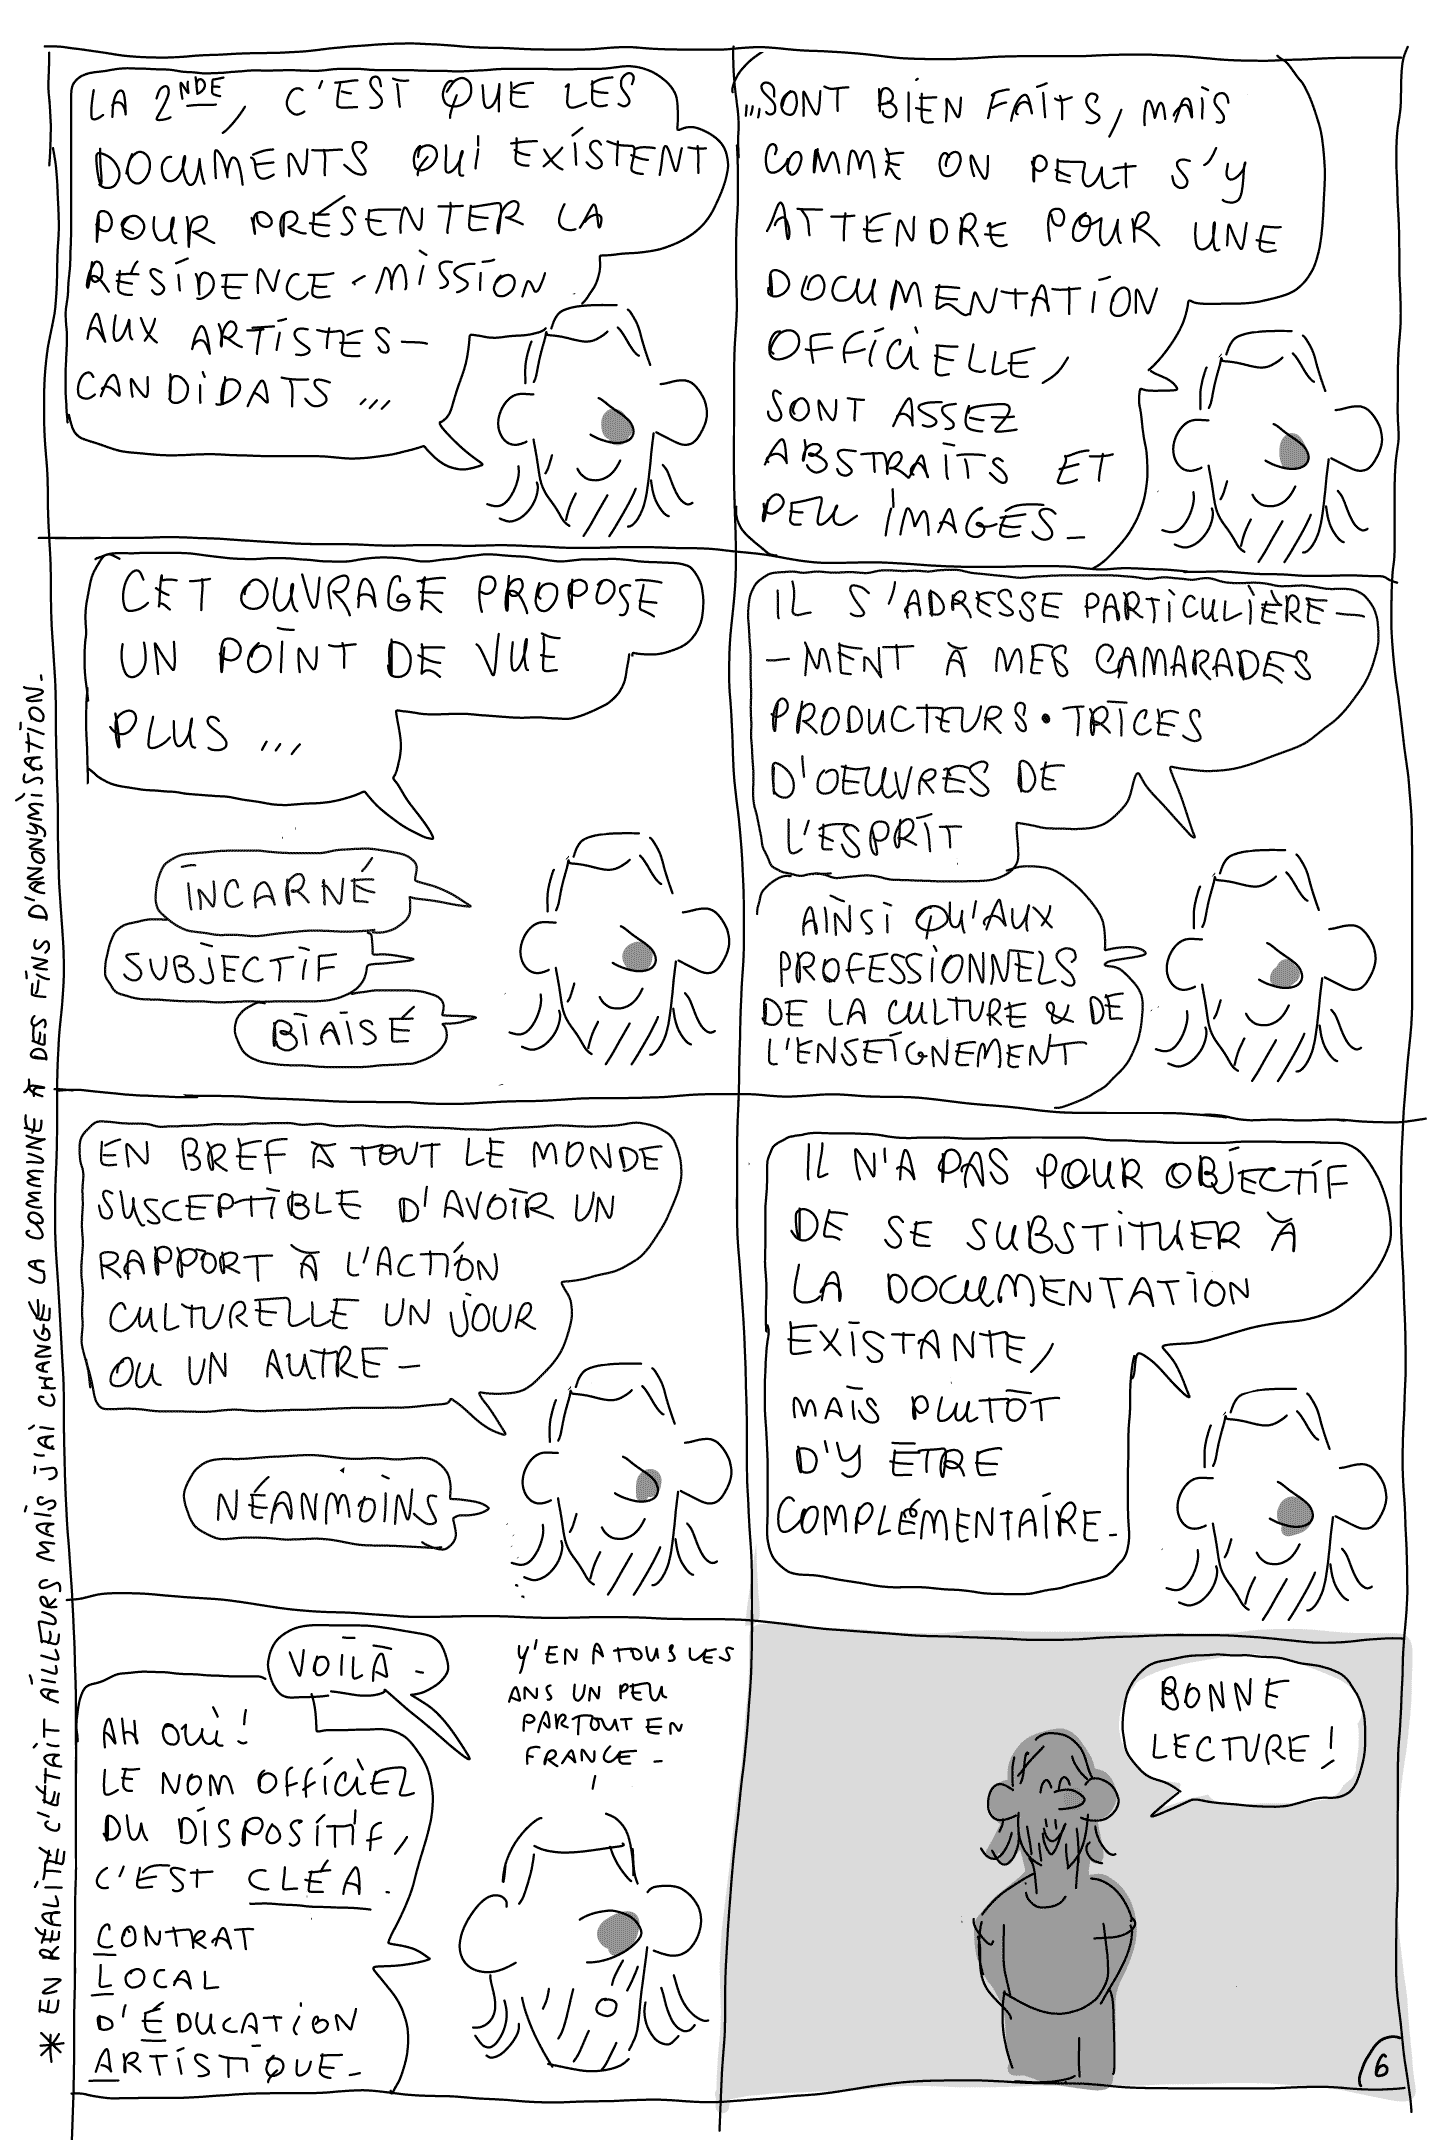 LA 2NDE, C'EST QUE LES
DOCUMENTS QUI EXISTENT
POUR PRÉSENTER LA
RÉSIDENCE-MISSION
AUX ARTISTES-
CANDIDATS ...
...SONT BIEN FAITS, MAIS
COMME ON PEUT S'Y
ATTENDRE POUR UNE
DOCUMENTATION
OFFICIELLE,
SONT ASSEZ
ABSTRAITS ET
PEU IMAGÉS_
CET OUVRAGE PROPOSE
UN POINT DE VUE
PLUS ...
INCARNÉ
SUBJECTIF
BIAISÉ
IL S'ADRESSE PARTICULIÈRE-
-MENT À MES CAMARADES
PRODUCTEURS•TRICES
D'OEUVRES DE
L'ESPRIT
AINSI QU'AUX
PROFESSIONNELS
DE LA CULTURE & DE
L'ENSEIGNEMENT
EN BREF À TOUT LE MONDE
SUSCEPTIBLE D'AVOIR UN
RAPPORT À L'ACTION
CULTURELLE UN JOUR
OU UN AUTRE-
NÉANMOINS
IL N'A PAS POUR OBJECTIF
DE SE SUBSTITUER À
LA DOCUMENTATION
EXISTANTE,
MAIS PLUTÔT
D'Y ÊTRE
COMPLÉMENTAIRE.
VOILÀ -
Y'EN A TOUS LES
ANS UN PEU
PARTOUT EN
FRANCE -
AH OUI !
LE NOM OFFICIEL
DU DISPOSITIF,
C'EST CLÉA.
CONTRAT
LOCAL
D'ÉDUCATION
ARTISTIQUE_
BONNE
LECTURE !
6
* EN RÉALITÉ C'ÉTAIT AILLEURS MAIS J'AI CHANGÉ LA COMMUNE À DES FINS D'ANONYMISATION.